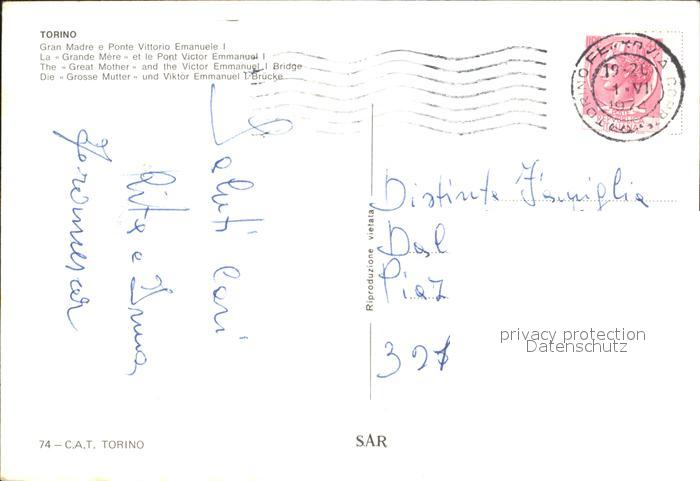 TORINO
Gran Madre e Ponte Vittorio Emanuele I
La « Grande Mère » et le Pont Victor Emmanuel I
The « Great Mother » and the Victor Emmanuel I Bridge
Die « Grosse Mutter » und Viktor Emmanuel I Brücke
TORINO FERROVIA
19-20
1·VII
Saluti cari
Rita e Irma
Distinta Famiglia
Dal
Piaz
Riproduzione vietata
privacy protection
Datenschutz
74 – C.A.T. TORINO
SAR